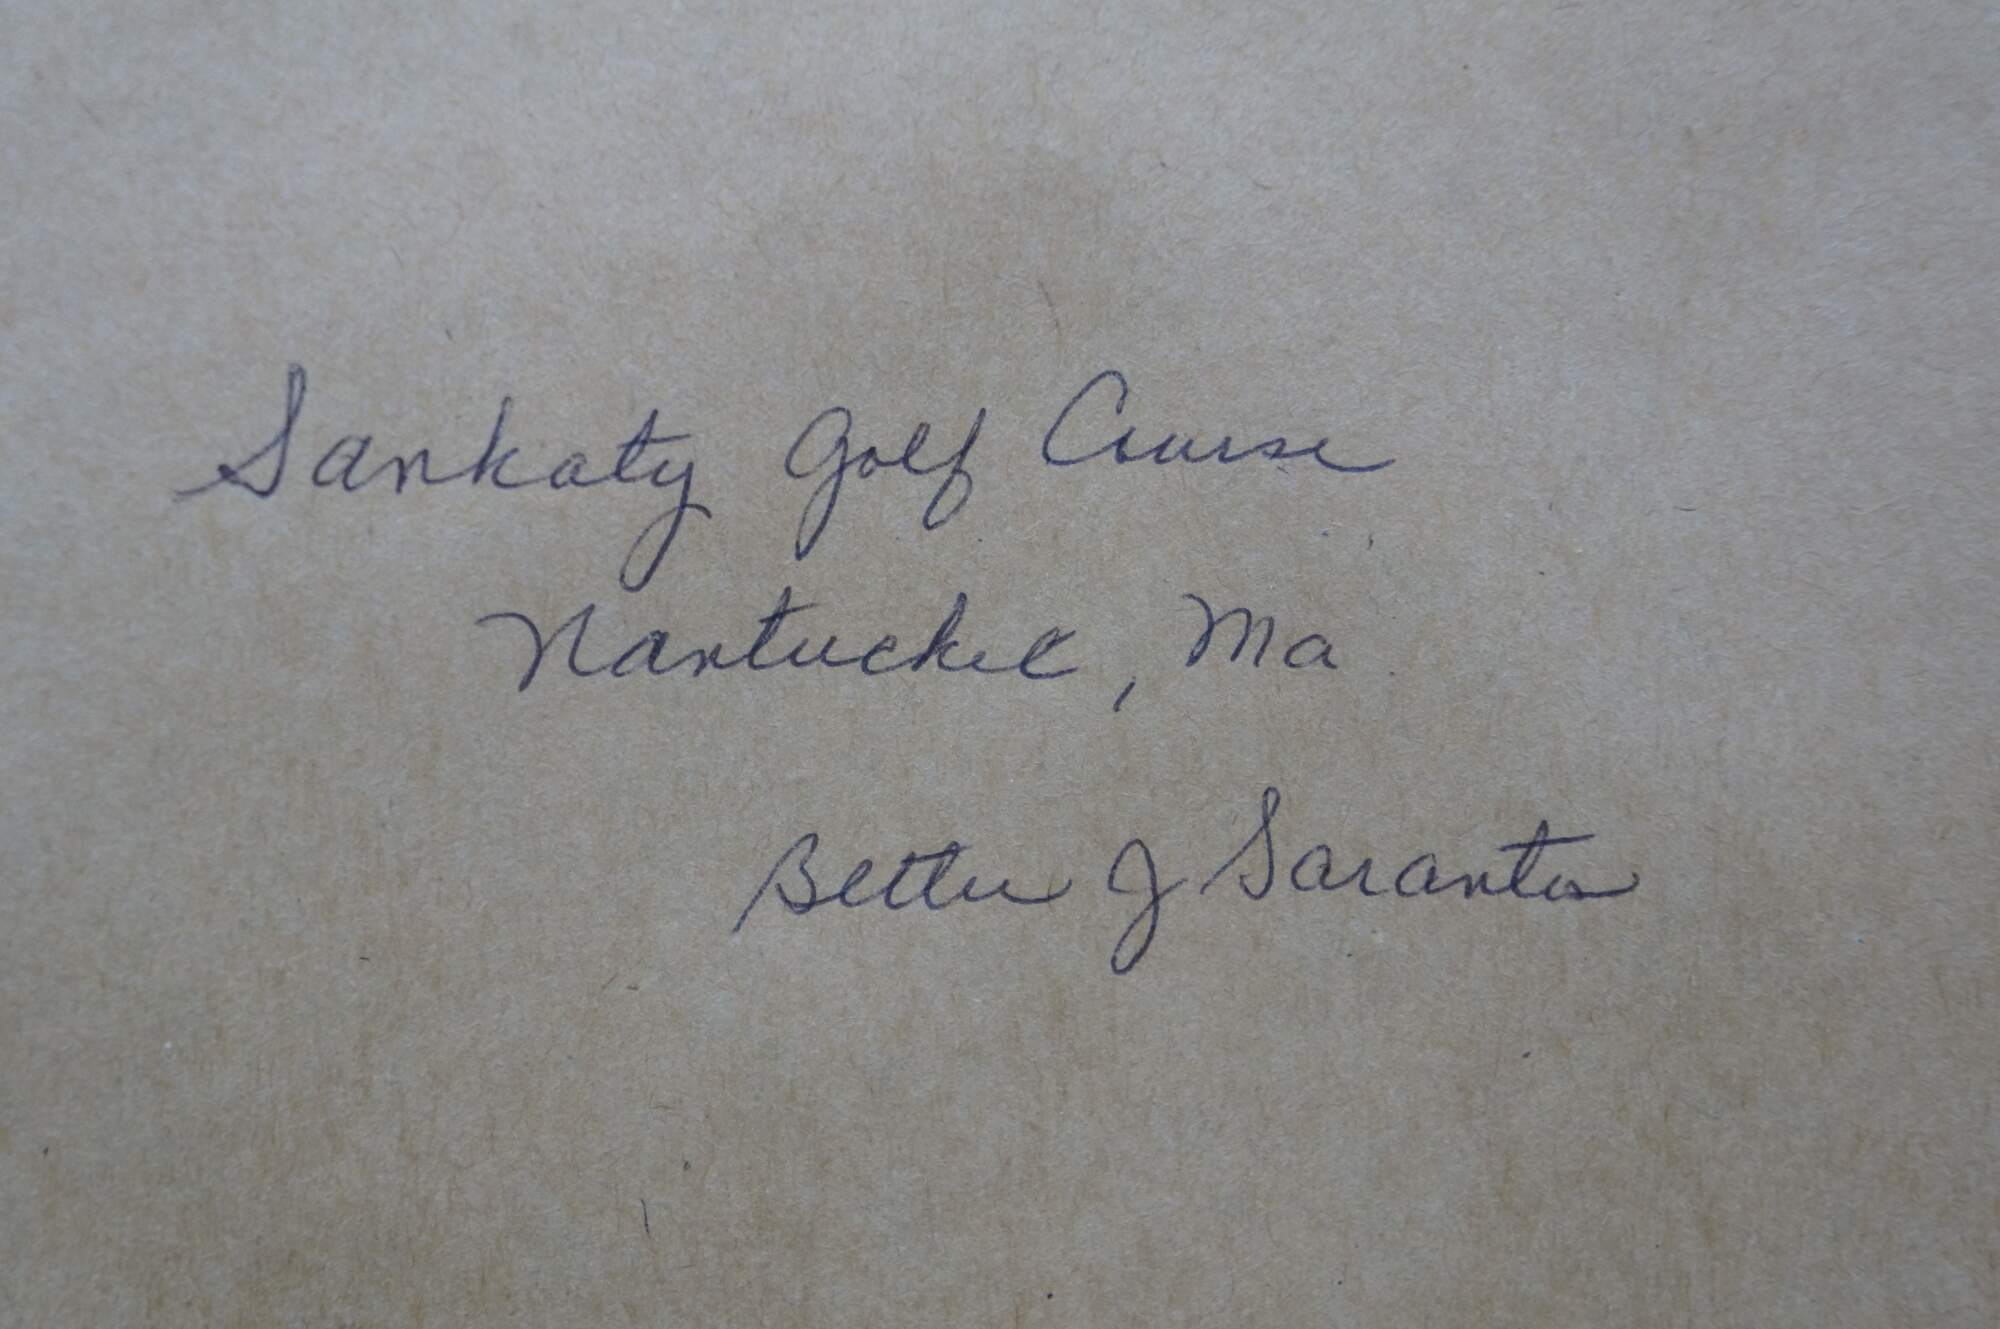 Sankaty Golf Course
Nantucket, Ma
Bettie J Sarantos